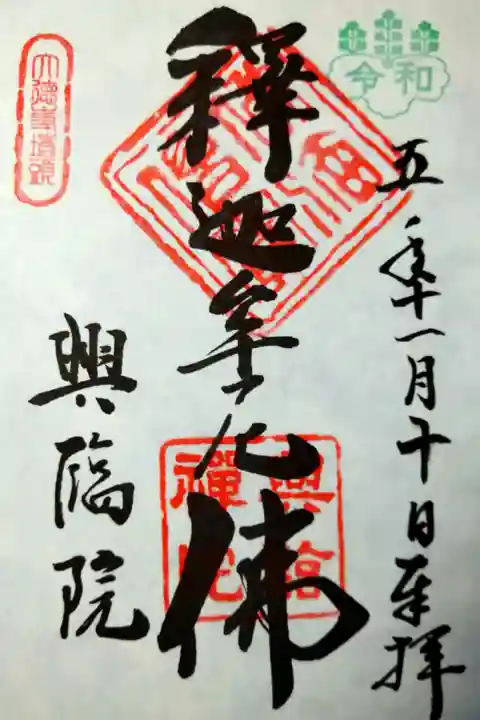 令和
五年十一月十日奉拝
釋迦牟尼佛
大徳寺塔頭
興臨院
興臨
禅院